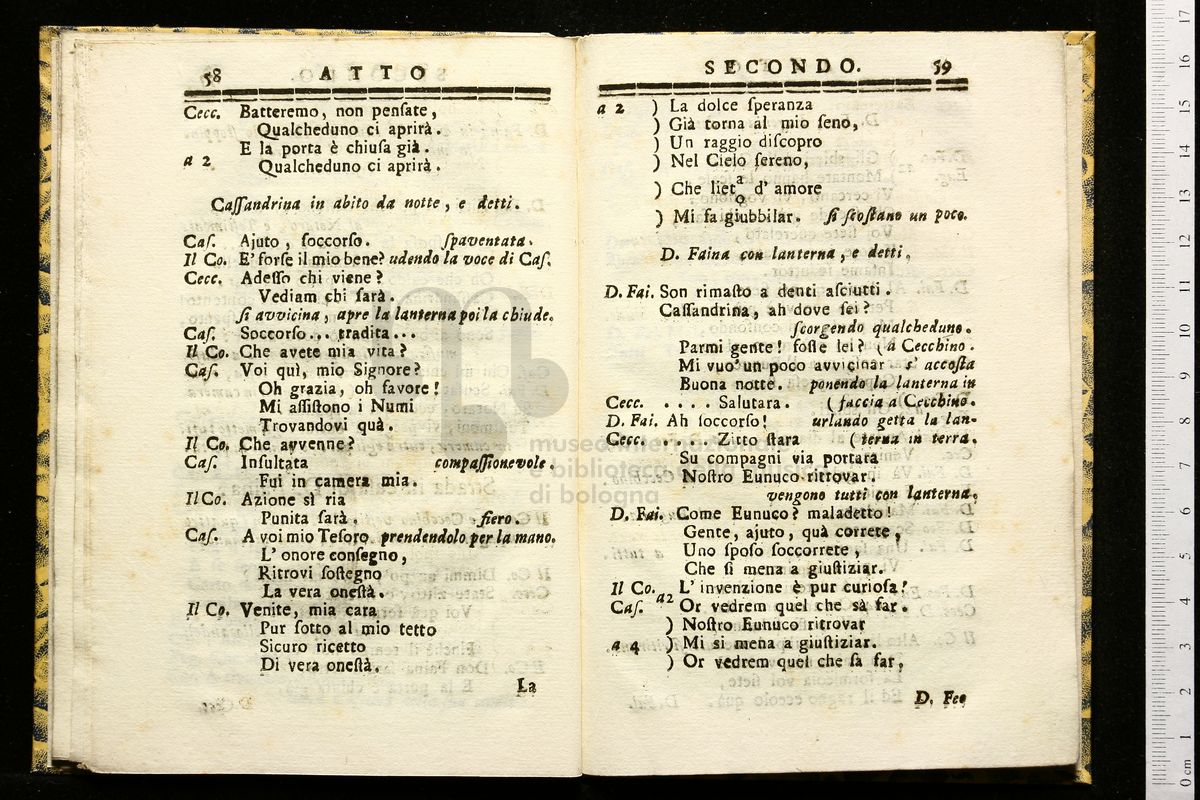 58 ATTO
Cecc. Batteremo, non penſate,
Qualcheduno ci aprirà.
E la porta è chiuſa già.
a 2
Qualcheduno ci aprirà.
Caſſandrina in abito da notte, e detti.
Caſ. Ajuto, ſoccorſo. ſpaventata.
Il Co. E' forſe il mio bene? udendo la voce di Caſ.
Cecc. Adeſſo chi viene?
Vediam chi ſarà.
ſi avvicina, apre la lanterna poi la chiude.
Caſ. Soccorſo... tradita...
Il Co. Che avete mia vita?
Caſ. Voi quì, mio Signore?
Oh grazia, oh favore!
Mi aſſiſtono i Numi
Trovandovi quà.
Il Co. Che avvenne?
Caſ. Inſultata compaſſionevole.
Fui in camera mia.
Il Co. Azione sì ria
Punita ſarà. fiero.
Caſ. A voi mio Teſoro prendendolo per la mano.
L' onore conſegno,
Ritrovi ſoſtegno
La vera oneſtà.
Il Co. Venite, mia cara
Pur ſotto al mio tetto
Sicuro ricetto
Di vera oneſtà.
La
SECONDO. 59
a 2 ) La dolce ſperanza
) Già torna al mio ſeno,
) Un raggio diſcopro
) Nel Cielo ſereno,
a
) Che liet d' amore
o
) Mi fa giubbilar. ſi ſcoſtano un poco.
D. Faina con lanterna, e detti.
D. Fai. Son rimaſto a denti aſciutti.
Caſſandrina, ah dove ſei?
ſcorgendo qualcheduno.
Parmi gente! foſſe lei? (a Cecchino.
Mi vuo' un poco avvicinar s' accoſta
Buona notte. ponendo la lanterna in
Cecc. .... Salutara. (faccia a Cecchino.
D. Fai. Ah ſoccorſo! urlando getta la lan-
Cecc. .... Zitto ſtara (terna in terra.
Su compagni via portara
Noſtro Eunuco ritrovar.
vengono tutti con lanterna.
D. Fai. Come Eunuco? maladetto!
Gente, ajuto, quà correte,
Uno ſpoſo ſoccorrete,
Che ſi mena a giuſtiziar.
Il Co. L' invenzione è pur curioſa!
a2
Caſ. Or vedrem quel che sà far.
) Noſtro Eunuco ritrovar
a 4 ) Mi si mena a giuſtiziar.
) Or vedrem quel che ſa far.
D. Fee
museo internazionale
e biblioteca della musica
di bologna
0 cm 1 2 3 4 5 6 7 8 9 10 11 12 13 14 15 16 17